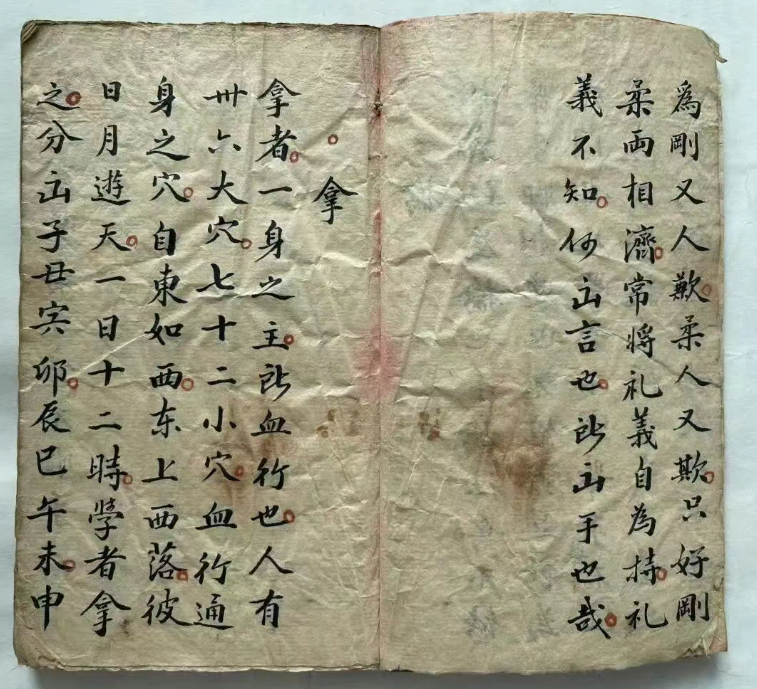 為剛又人歎柔人又欺只好剛
柔両相濟常将礼義自為持礼
義不知何出言也訫出手也哉
拿
拿者一身之主訫血行也人有
卅六大穴七十二小穴血行通
身之穴自東如西东上西落彼
日月遊天一日十二時學者拿
之分出子丑寅卯辰巳午未申